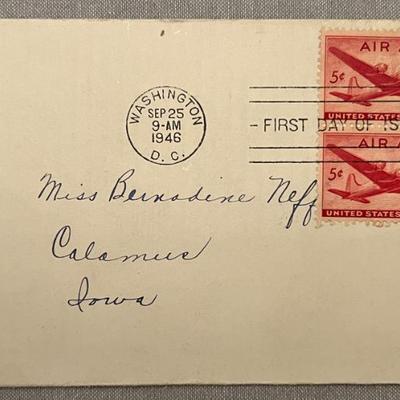 WASHINGTON
SEP 25
9-AM
1946
D. C.
FIRST DAY OF IS
AIR
5¢
UNITED STATES
AIR
5¢
UNITED STATES
Miss Bernadine Neff
Calamus
Iowa